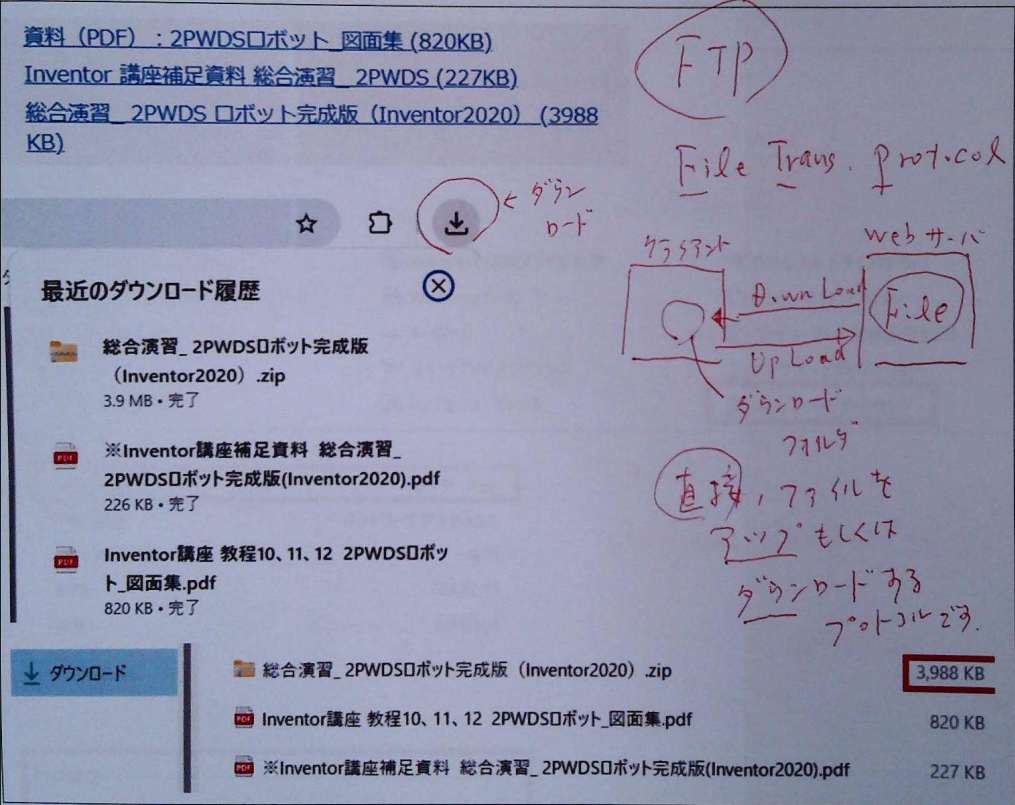 資料（PDF）：2PWDSロボット_図面集 (820KB)
Inventor 講座補足資料 総合演習_ 2PWDS (227KB)
総合演習_ 2PWDS ロボット完成版（Inventor2020） (3988
KB)
FTP
File Trans. Protocol
←ダウン
ロード
最近のダウンロード履歴
総合演習_ 2PWDSロボット完成版
（Inventor2020）.zip
3.9 MB • 完了
※Inventor講座補足資料 総合演習_
2PWDSロボット完成版(Inventor2020).pdf
226 KB • 完了
Inventor講座 教程10、11、12 2PWDSロボッ
ト_図面集.pdf
820 KB • 完了
クライアント
Webサーバ
Down Load
File
Up Load
ダウンロード
フォルダ
直接，ファイルを
アップもしくは
ダウンロードする
プロトコルです.
ダウンロード
総合演習_ 2PWDSロボット完成版（Inventor2020）.zip
3,988 KB
Inventor講座 教程10、11、12 2PWDSロボット_図面集.pdf
820 KB
※Inventor講座補足資料 総合演習_ 2PWDSロボット完成版(Inventor2020).pdf
227 KB